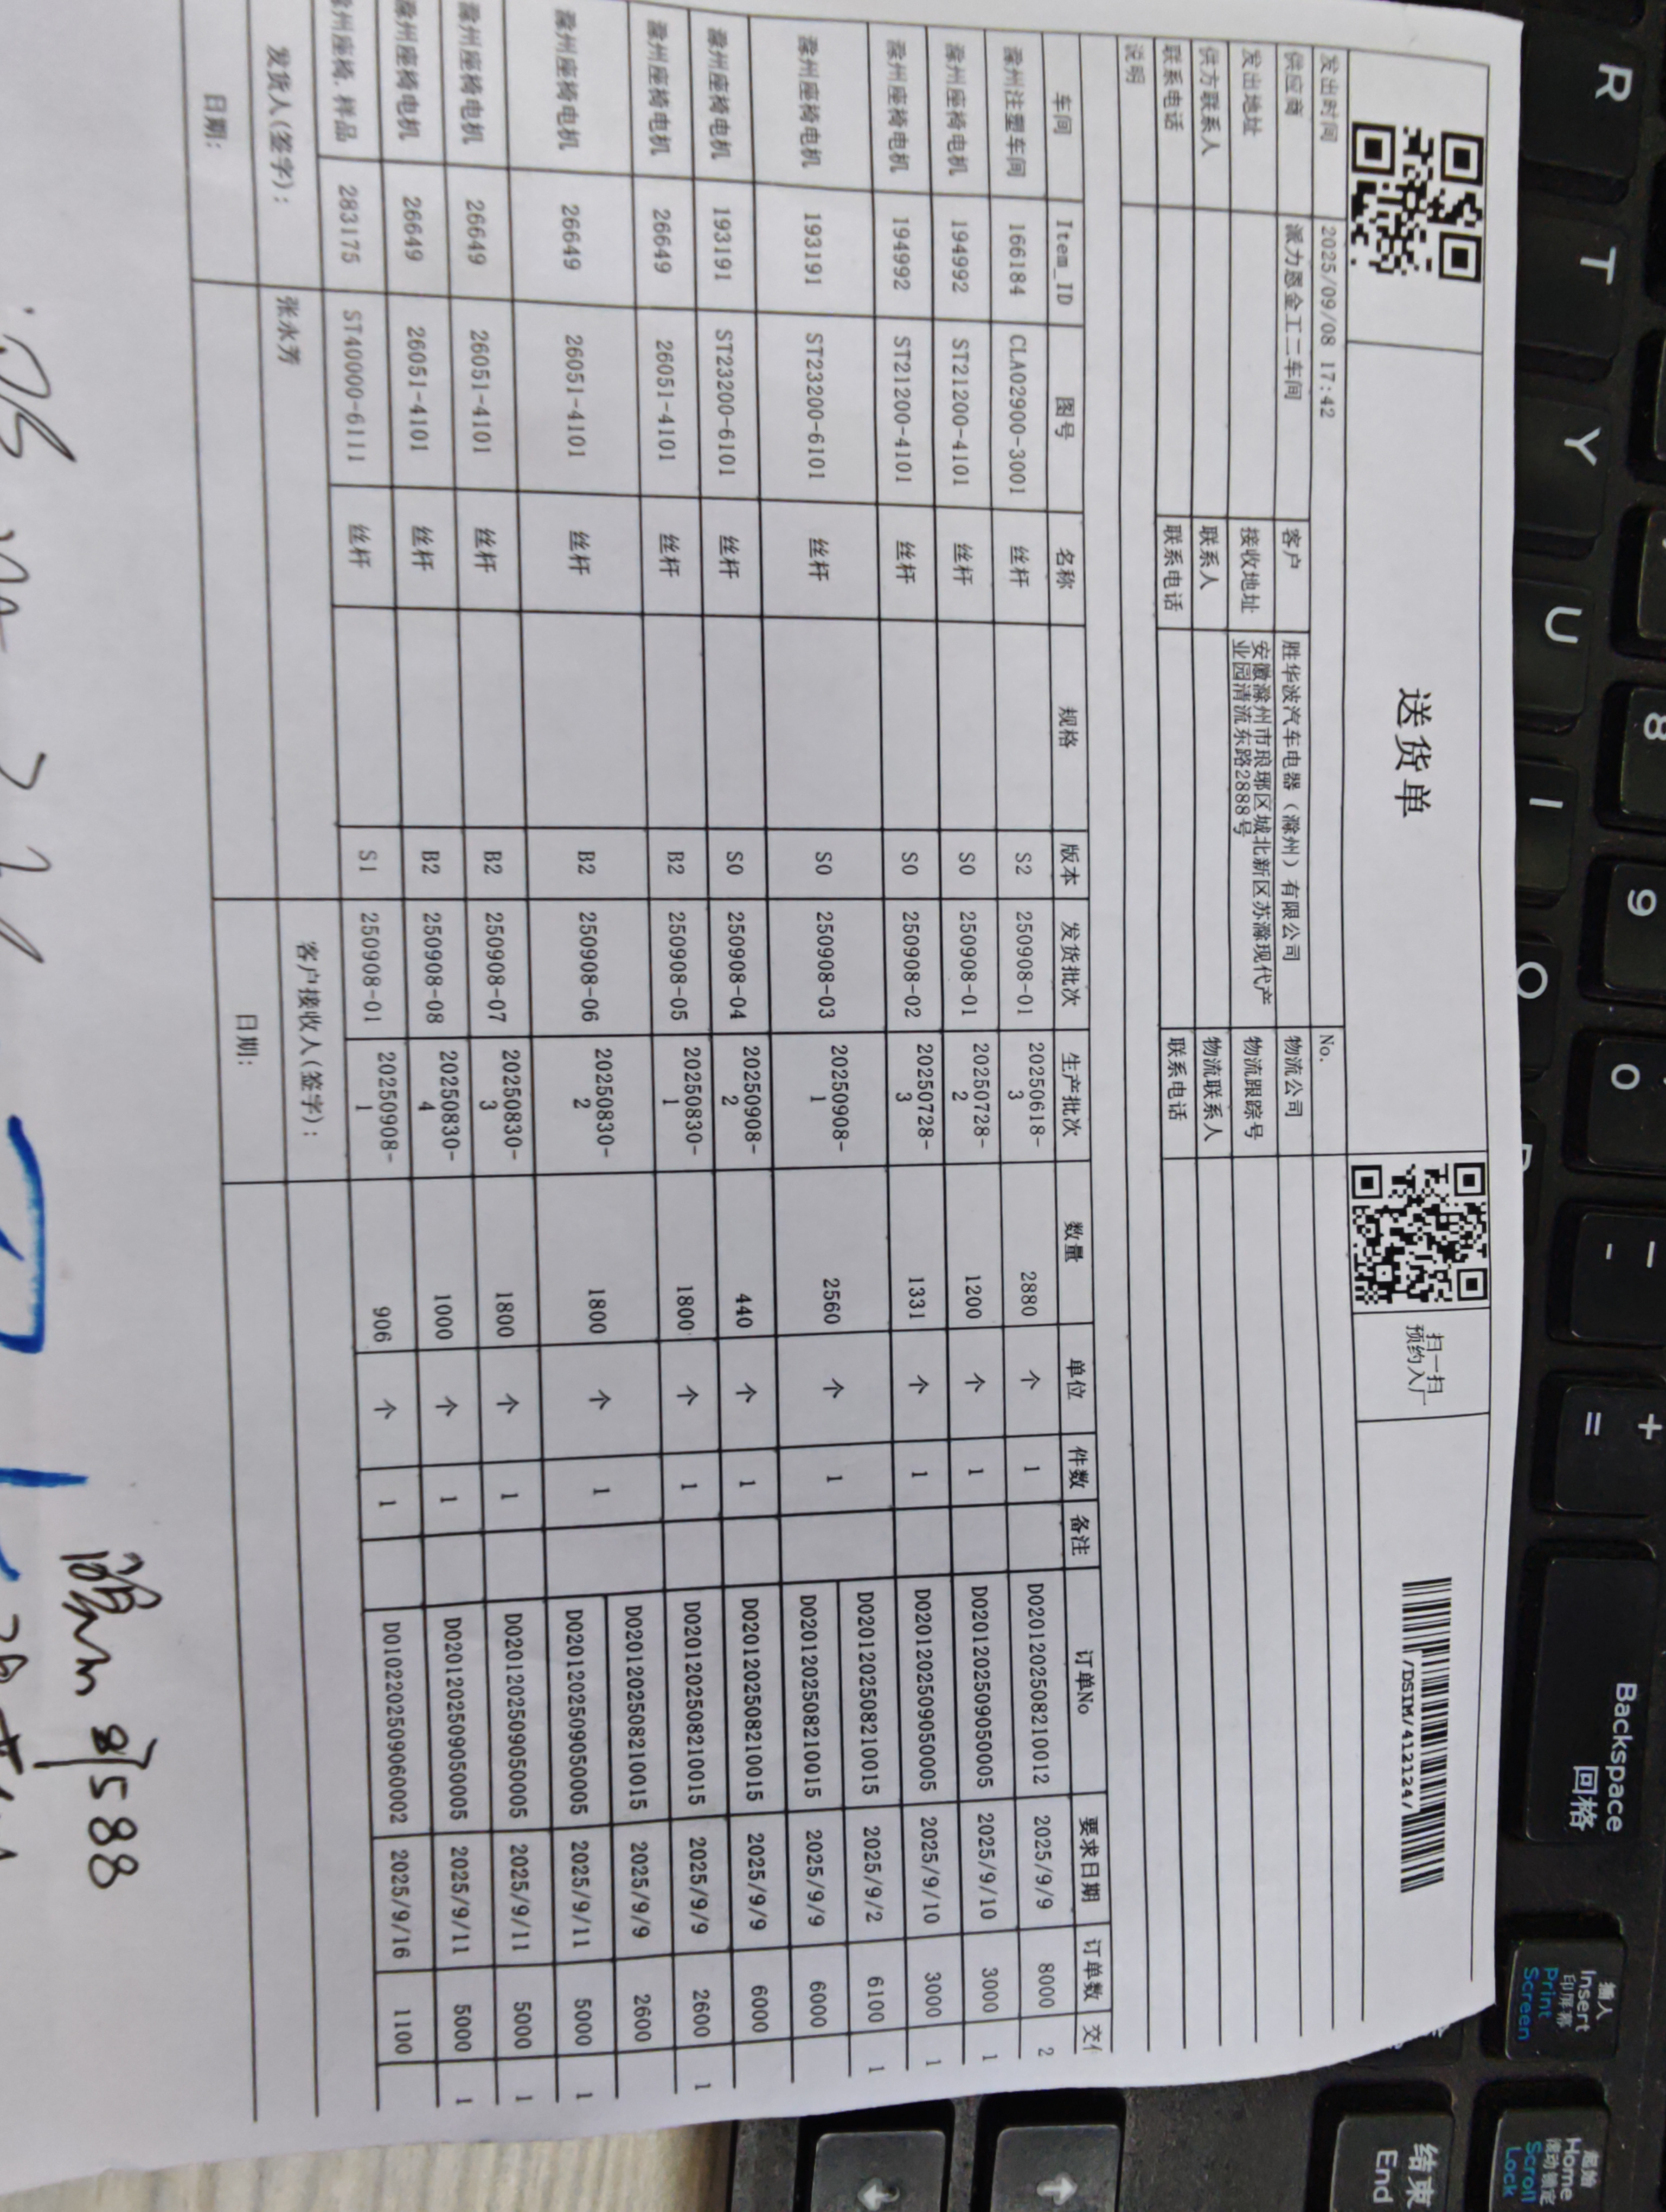 送货单
扫一扫
预约入厂
/DSDM/412124/
发出时间 2025/09/08 17:42 No.
供应商 派力恩金工二车间 客户 胜华波汽车电器（滁州）有限公司 物流公司
发出地址 接收地址 安徽滁州市琅琊区城北新区苏滁现代产
业园清流东路2888号 物流跟踪号
供方联系人 联系人 物流联系人
联系电话 联系电话 联系电话
说明
车间 Item_ID 图号 名称 规格 版本 发货批次 生产批次 数量 单位 件数 备注 订单No 要求日期 订单数
滁州注塑车间 166184 CLA02900-3001 丝杆 S2 250908-01 20250618-3 2880 个 1 DO201202508210012 2025/9/9 8000 2
滁州座椅电机 194992 ST21200-4101 丝杆 S0 250908-01 20250728-2 1200 个 1 DO201202509050005 2025/9/10 3000 1
滁州座椅电机 194992 ST21200-4101 丝杆 S0 250908-02 20250728-3 1331 个 1 DO201202509050005 2025/9/10 3000 1
滁州座椅电机 193191 ST23200-6101 丝杆 S0 250908-03 20250908-1 2560 个 1 DO201202508210015 2025/9/2 6100 1
DO201202508210015 2025/9/9 6000
滁州座椅电机 193191 ST23200-6101 丝杆 S0 250908-04 20250908-2 440 个 1 DO201202508210015 2025/9/9 6000
滁州座椅电机 26649 26051-4101 丝杆 B2 250908-05 20250830-1 1800 个 1 DO201202508210015 2025/9/9 2600 1
滁州座椅电机 26649 26051-4101 丝杆 B2 250908-06 20250830-2 1800 个 1 DO201202508210015 2025/9/9 2600
DO201202509050005 2025/9/11 5000 1
滁州座椅电机 26649 26051-4101 丝杆 B2 250908-07 20250830-3 1800 个 1 DO201202509050005 2025/9/11 5000 1
滁州座椅电机 26649 26051-4101 丝杆 B2 250908-08 20250830-4 1000 个 1 DO201202509050005 2025/9/11 5000 1
滁州座椅.样品 283175 ST40000-6111 丝杆 S1 250908-01 20250908-1 906 个 1 DO102202509060002 2025/9/16 1100
发货人(签字): 张永芳 客户接收人(签字):
日期: 日期:
R
T
Y
U
I
O
8
9
0
-
+
=
Backspace
回格
插入
Insert
印屏幕
Print
Screen
起始
Home
滚动锁定
Scroll
Lock
结束
End